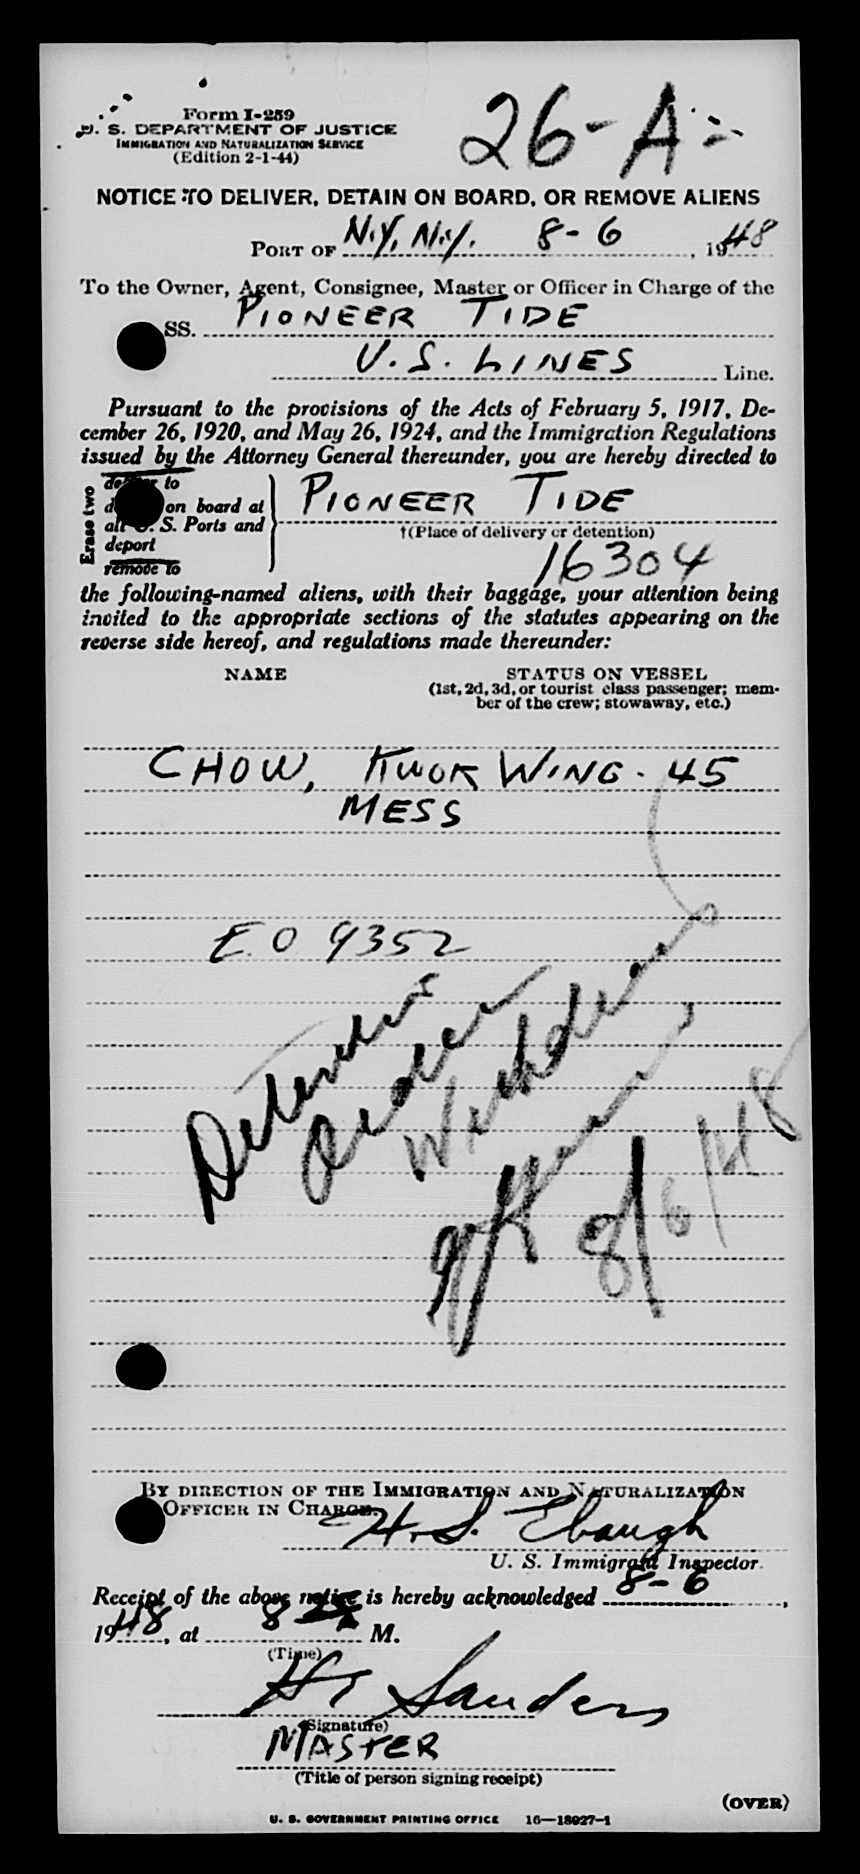 Form I-259
U. S. DEPARTMENT OF JUSTICE
IMMIGRATION AND NATURALIZATION SERVICE
(Edition 2-1-44)
26-A
NOTICE TO DELIVER, DETAIN ON BOARD, OR REMOVE ALIENS
PORT OF N.Y, N.Y. 8-6, 1948
To the Owner, Agent, Consignee, Master or Officer in Charge of the
SS. PIONEER TIDE
U.S. LINES Line.
Pursuant to the provisions of the Acts of February 5, 1917, De-
cember 26, 1920, and May 26, 1924, and the Immigration Regulations
issued by the Attorney General thereunder, you are hereby directed to
Erase two
to
on board at
all U. S. Ports and
deport
remove to
PIONEER TIDE
†(Place of delivery or detention)
16304
the following-named aliens, with their baggage, your attention being
invited to the appropriate sections of the statutes appearing on the
reverse side hereof, and regulations made thereunder:
NAME
STATUS ON VESSEL
(1st, 2d, 3d, or tourist class passenger; mem-
ber of the crew; stowaway, etc.)
CHOW, KWOK WING - 45
MESS
E.O. 9352
Detention
Order
Withdrawn
8/6/48
BY DIRECTION OF THE IMMIGRATION AND NATURALIZATION
OFFICER IN CHARGE.
H.S. Ebaugh
U. S. Immigrant Inspector.
Receipt of the above notice is hereby acknowledged 8-6,
1948, at 8 M.
(Time)
H T Sanders
(Signature)
MASTER
(Title of person signing receipt)
(OVER)
U. S. GOVERNMENT PRINTING OFFICE 16—18927-1